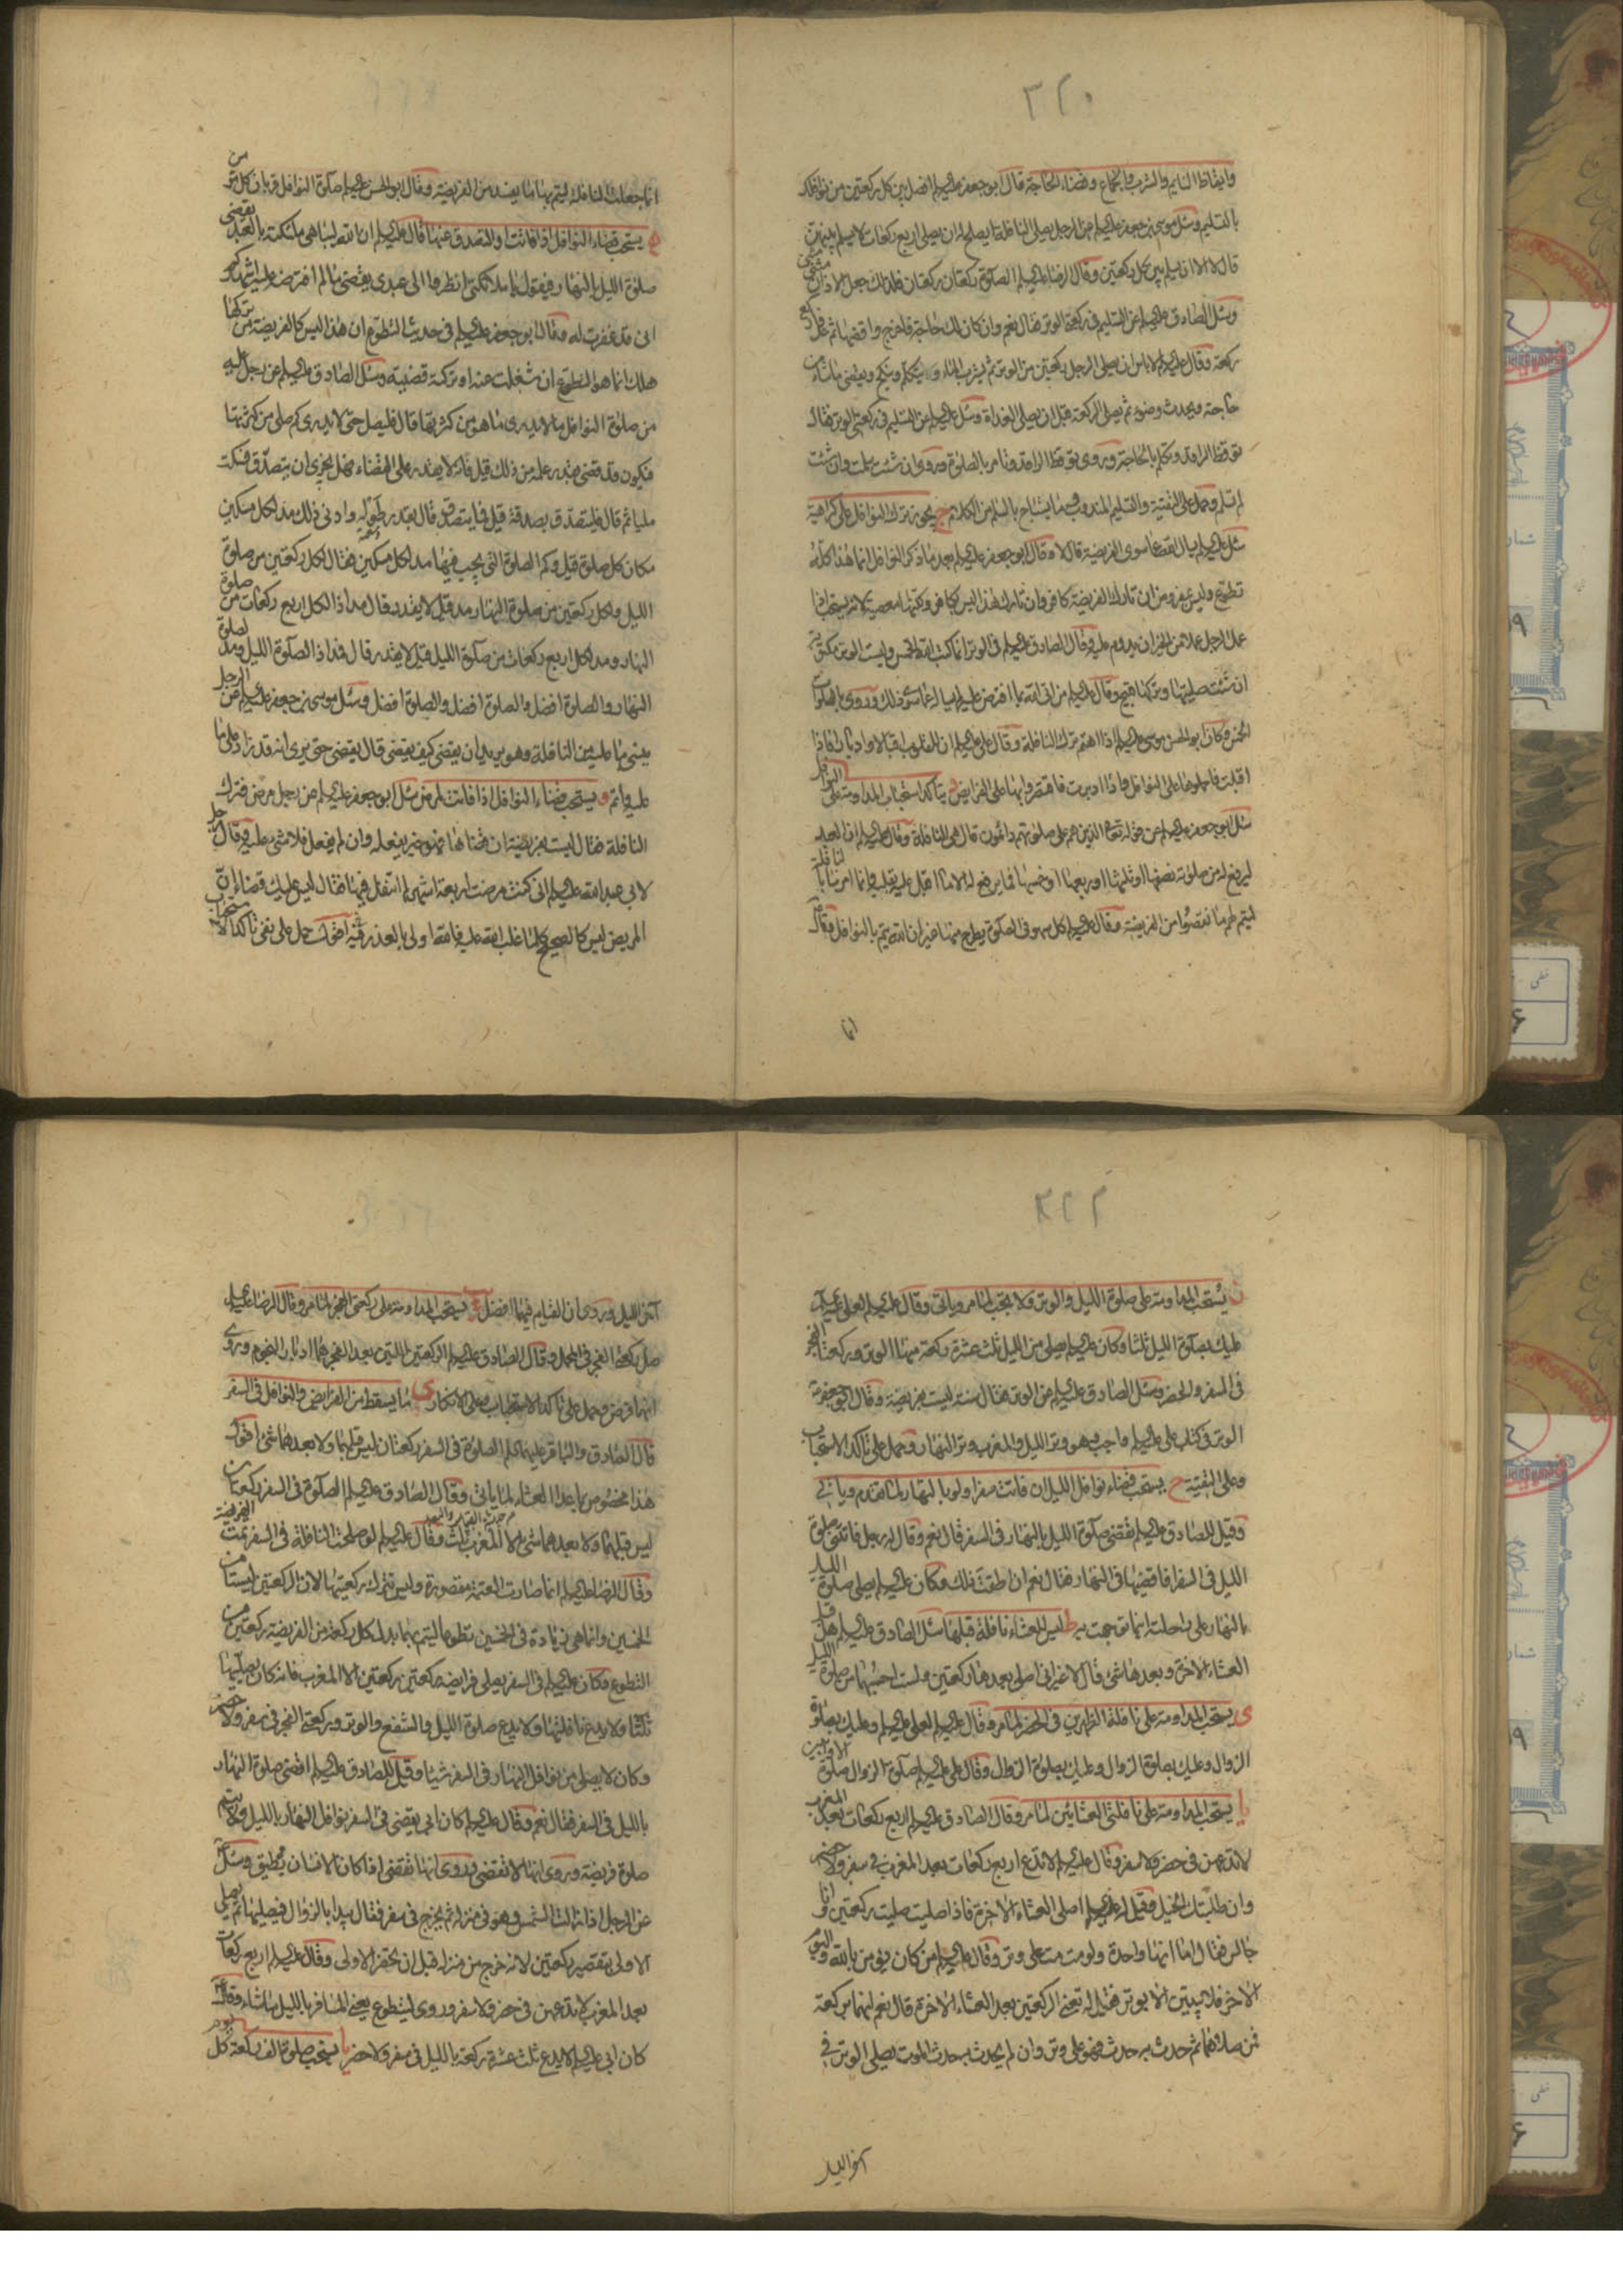 ٣٢٠
وايقاظ النايم والشرب والجماع وقضاء الحاجة قال ابو جعفر عليه السلم افصل بين كل ركعتين من نوافلك
بالتسليم وسئل موسى بن جعفر عليه السلم عن الرجل يصلى النافلة ايصلح له ان يصلى اربع ركعات لا يسلم بينهن
قال لا الا ان يسلم بين كل ركعتين وقال الرضا عليه السلم الصلوة ركعتان ركعتان فلذلك جعل الاذان مثنى مثنى
وسئل الصادق عليه السلم عن التسليم فى ركعتى الوتر فقال نعم وان كان لك حاجة فاخرج واقضها ثم عد واركع
ركعة وقال عليه السلم لا باس ان يصلى الرجل ركعتين من الوتر ثم يشرب الماء ويتكلم وينكح ويقضى ما شاء من
حاجة ويحدث وضوء ثم يصلى الركعة قبل ان يصلى الغداة وسئل عليه السلم عن التسليم فى ركعتى الوتر فقال
توقظ الراقد وتكلم بالحاجة وروى توقظ الراقد وتامر بالصلوة وروى ان شئت سلمت وان شئت
لم تسلم وحمل على التقية والتسليم المندوب وما يستباح بالسلم من الكلام ج يجوز ترك النوافل على كراهية
سئل عليه السلم ايسال الله عما سوى الفريضة قال لا وقال ابو جعفر عليه السلم بعد ما ذكر النوافل انما هذا كله
تطوع وليس بمفروض ان تارك الفريضة كافر وان تارك هذا ليس بكافر ولكنها معصية لانه يستحب اذا
عمل الرجل عملا من الخير ان يدوم عليه وقال الصادق عليه السلم فى الوتر انما كتب الله الخمس وليست الوتر مكتوبة
ان شئت صليتها وتركها قبيح وقال عليه السلم من اتى الله بما افترض عليه لم يساله عما سوى ذلك وروى بالصلوات
الخمس وكان ابو الحسن موسى عليه السلم اذا اهتم ترك النافلة وقال على عليه السلم ان للقلوب اقبالا وادبارا فاذا
اقبلت فاحملوها على النوافل واذا ادبرت فاقتصروا بها على الفرايض د يتاكد استحباب المداومة على النوافل
سئل ابو جعفر عليه السلم عن قوله تعالى الذين هم على صلوتهم دائمون قال هى النافلة وقال عليه السلم ان العبد
ليرفع له من صلوته نصفها او ثلثها او ربعها او خمسها فما يرفع له الا ما اقبل عليه بقلبه وانما امرنا بالنافلة
ليتم لهم ما نقصوا من الفريضة وقال عليه السلم كل سهو فى الصلوة يطرح منها غير ان الله يتم بالنوافل وقال
انما
انما جعلت النافلة ليتم بها ما يفسد من الفريضة وقال ابو الحسن عليه السلم صلوة النوافل قربان كل مؤمن
ه يستحب قضاء النوافل اذا فاتت والتصدق عنها قال عليه السلم ان الله ليباهى ملئكته بالعبد يقضى
صلوة الليل بالنهار فيقول يا ملائكتى انظروا الى عبدى يقضى ما لم افترضه عليه اشهدكم
انى قد غفرت له وقال ابو جعفر عليه السلم فى حديث التطوع ان هذا ليس كالفريضة من تركها
هلك انما هو التطوع ان شغلت عنه او تركته قضيته وسئل الصادق عليه السلم عن رجل عليه
من صلوة النوافل ما لا يدرى ما هو من كثرتها قال فليصل حتى لا يدرى كم صلى من كثرتها
فيكون قد قضى بقدر علمه من ذلك قيل فانه لا يقدر على القضاء فهل يجزى ان يتصدق فسكت
مليا ثم قال فليتصدق بصدقة قيل فما يتصدق قال بقدر طوله وادنى ذلك مد لكل مسكين
مكان كل صلوة قيل وكم الصلوة التى يجب فيها مد لكل مسكين فقال لكل ركعتين من صلوة
الليل ولكل ركعتين من صلوة النهار مد قيل لا يقدر قال مد اذا لكل اربع ركعات من صلوة
النهار ومد لكل اربع ركعات من صلوة الليل قيل لا يقدر قال فمد اذا لصلوة الليل ومد لصلوة
النهار والصلوة افضل والصلوة افضل والصلوة افضل وسئل موسى بن جعفر عليه السلم عن الرجل
ينسى ما عليه من النافلة وهو يريد ان يقضى كيف يقضى قال يقضى حتى يرى انه قد زاد على ما
عليه واتم و يستحب قضاء النوافل اذا فاتت لمرض سئل ابو جعفر عليه السلم عن رجل مرض فترك
النافلة فقال ليست بفريضة ان قضاها فهو خير يفعله وان لم يفعل فلا شىء عليه وقال رجل
لابى عبد الله عليه السلم انى كنت مرضت اربعة اشهر لم اتنفل فيها فقال ليس عليك قضاء ان
المريض ليس كالصحيح كلما غلب الله عليه فالله اولى بالعذر فيه اقول حمل على نفى تاكد الاستحباب
٣٢٢
ز يستحب المداومة على صلوة الليل والوتر ولا يجب لما مر وياتى وقال عليه السلم لعلى عليه السلم
عليك بصلوة الليل ثلثا وكان عليه السلم يصلى من الليل ثلث عشرة ركعة منها الوتر وركعتا الفجر
فى السفر والحضر وسئل الصادق عليه السلم عن الوتر فقال سنة ليست بفريضة وقال ابو جعفر
الوتر فى كتاب على عليه السلم واجب وهو وتر الليل والمغرب وتر النهار وحمل على تاكد الاستحباب
وعلى التقية ح يستحب قضاء نوافل الليل ان فاتت سفرا ولو بالنهار لما تقدم وياتى
وقيل للصادق عليه السلم تقضى صلوة الليل بالنهار فى السفر قال نعم وقال له رجل فاتتنى صلوة
الليل فى السفر افاقضيها فى النهار فقال نعم ان اطقت ذلك وكان عليه السلم يصلى صلوة الليل
بالنهار على راحلته اينما توجهت به ط ليس للعشاء نافلة قبلها سئل الصادق عليه السلم هل قبل
العشاء الاخرة وبعدها شىء قال لا غير انى اصلى بعدها ركعتين ولست احسبهما من صلوة الليل
ى يستحب المداومة على نافلة الظهرين فى الحضر لما مر وقال عليه السلم لعلى عليه السلم وعليك بصلوة
الزوال وعليك بصلوة الزوال وعليك بصلوة الزوال وقال على عليه السلم صلوة الزوال صلوة الاوابين
يا يستحب المداومة على نافلتى العشائين لما مر وقال الصادق عليه السلم اربع ركعات بعد المغرب
لا تدعهن فى حضر ولا سفر وقال عليه السلم لا تدع اربع ركعات بعد المغرب فى سفر ولا حضر
وان طلبتك الخيل وقيل له عليه السلم اصلى العشاء الاخرة فاذا صليت صليت ركعتين وانا
جالس فقال اما انها واحدة ولو مت مت على وتر وقال عليه السلم من كان يؤمن بالله واليوم
الاخر فلا يبيتن الا بوتر فقيل له تعنى الركعتين بعد العشاء الاخرة قال نعم انهما بركعة
فمن صلاهما ثم حدث به حدث فهو على وتر وان لم يحدث به حدث الموت يصلى الوتر فى
آخر الليل
آخر الليل وروى ان القيام فيهما افضل يب يستحب المداومة على ركعتى الفجر لما مر وقال الرضا عليه السلم
صل ركعتى الفجر فى المحمل وقال الصادق عليه السلم الركعتين اللتين بعد الفجر هما ادبار النجوم وروى
انهما فرض وحمل على تاكد الاستحباب وعلى الانكار ى ما يسقط من الفرايض والنوافل فى السفر
قال الصادق والباقر عليهما السلم الصلوة فى السفر ركعتان ليس قبلهما ولا بعدهما شىء اقول
هذا مخصوص بما عدا العشاء لما ياتى وقال الصادق عليه السلم الصلوة فى السفر ركعتان
ليس قبلهما ولا بعدهما شىء الا المغرب ثلث وقال عليه السلم لو صلحت النافلة فى السفر تمت الفريضة
وقال الرضا عليه السلم انما صارت العتمة مقصورة وليس تترك ركعتيها لان الركعتين ليستا من
الخمسين وانما هى زيادة فى الخمسين تطوعا ليتم بهما بدل كل ركعة من الفريضة ركعتين من
التطوع وكان عليه السلم فى السفر يصلى فرايضه ركعتين ركعتين الا المغرب فانه كان يصليها
ثلثا ولا يدع نافلتها ولا يدع صلوة الليل والشفع والوتر وركعتى الفجر فى سفر ولا حضر
وكان لا يصلى من نوافل النهار فى السفر شيئا وقيل للصادق عليه السلم اقضى صلوة النهار
بالليل فى السفر فقال نعم وقال عليه السلم كان ابى يقضى فى السفر نوافل النهار بالليل ولا يتم
صلوة فريضة وروى انها لا تقضى وروى انها تقضى اذا كان الانسان يطيق وسئل
عن الرجل اذا زالت الشمس وهو فى منزله ثم يخرج فى سفر فقال يبدا بالزوال فيصليها ثم يصلى
الاولى بتقصير ركعتين لانه خرج من منزله قبل ان تحضر الاولى وقال عليه السلم اربع ركعات
بعد المغرب لا تدعهن فى حضر ولا سفر وروى ليتطوع يعنى المسافر بالليل ما شاء وقال
كان ابى عليه السلم لا يدع ثلث عشرة ركعة بالليل فى سفر ولا حضر يا يستحب صلوة الف ركعة كل يوم